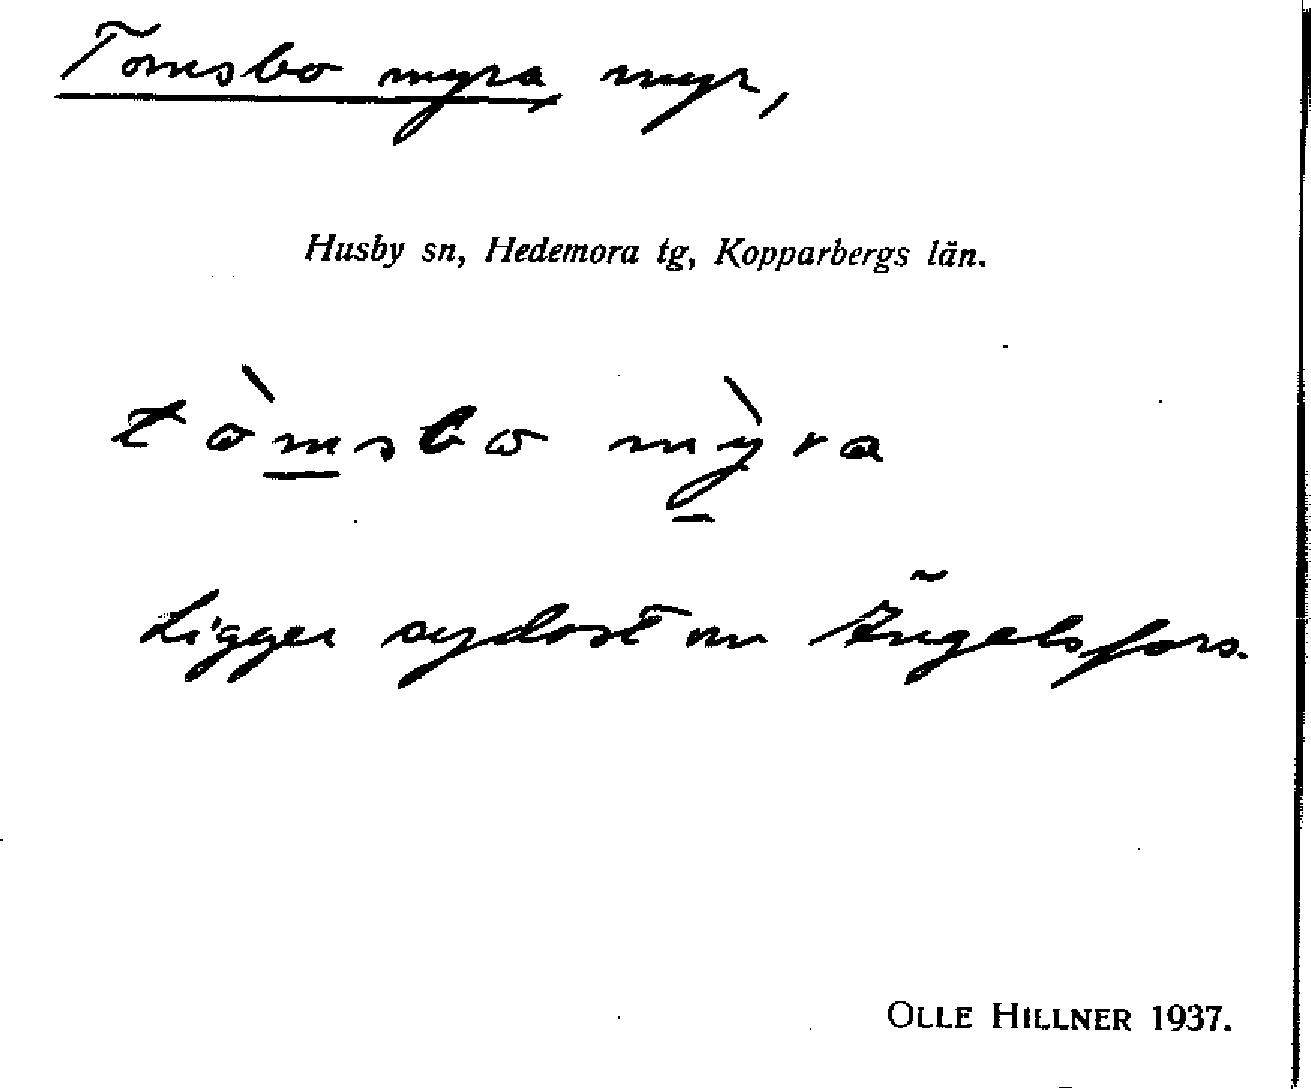 Tomsbo myra, myr,
Husby sn, Hedemora tg, Kopparbergs län.
tòmsbo mỳra
Ligger sydost om Ängelsfors.
OLLE HILLNER 1937.